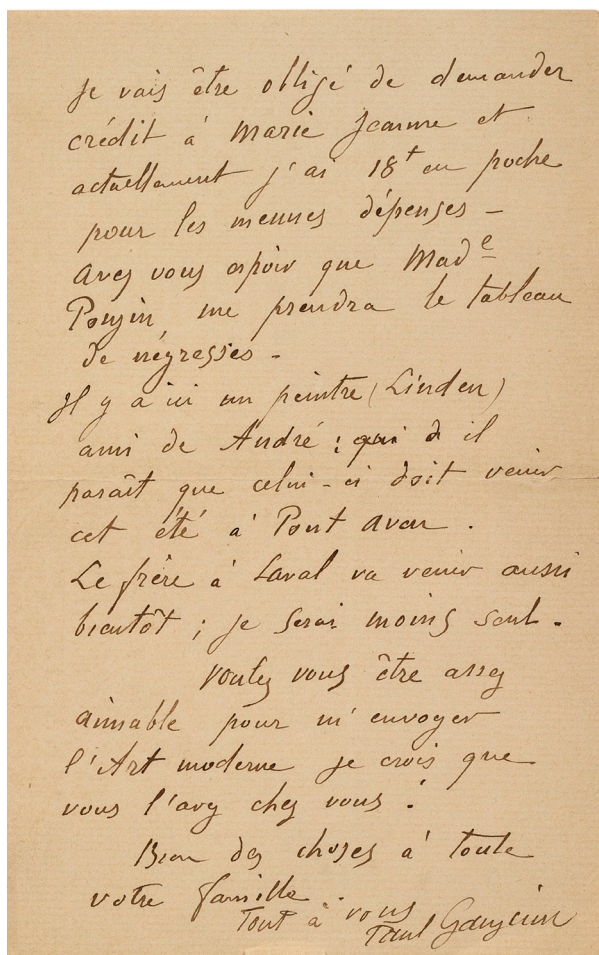 Je vais être obligé de demander
crédit à Marie Jeanne et
actuellement j'ai 18f en poche
pour les menues dépenses -
avez vous espoir que Made
Poujin, me prendra le tableau
de négresses -
Il y a ici un peintre (Linden)
ami de André ; qui d il
paraît que celui-ci doit venir
cet été à Pont Aven.
Le frère à Laval va venir aussi
bientôt ; je serai moins seul.
Voulez vous être assez
aimable pour m'envoyer
l'Art moderne je crois que
vous l'avez chez vous !
Bien des choses à toute
votre famille.
Tout à vous
Paul Gauguin